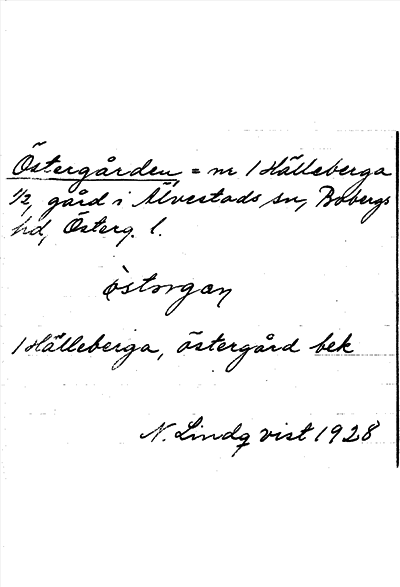 Östergården, = nr 1 Hälleberga
1/2, gård i Älvestads sn, Bobergs
hd, Österg. l.
östərgan
1 Hälleberga, östergård bek
N. Lindqvist 1928